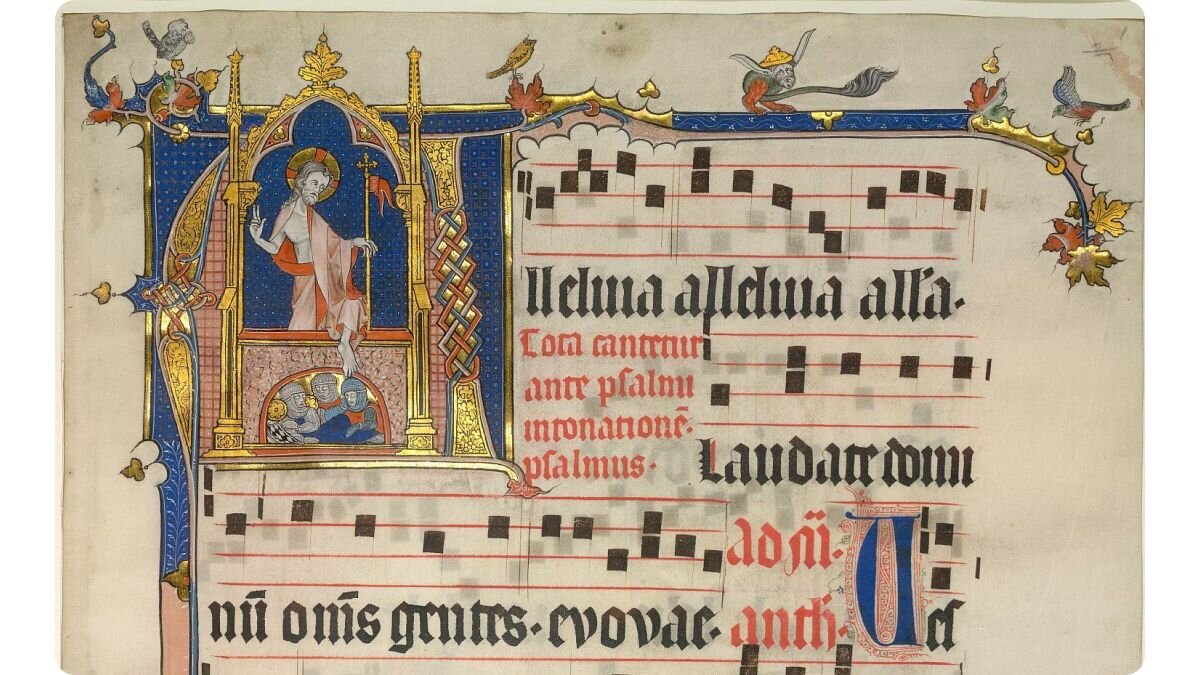 Alleluia alleluia all'a.
Tota cantetur
ante psalmi
intonationē.
psalmus. Laudate domi
nū om̄s gentes. evovae. ad m̄. anth'. Ves